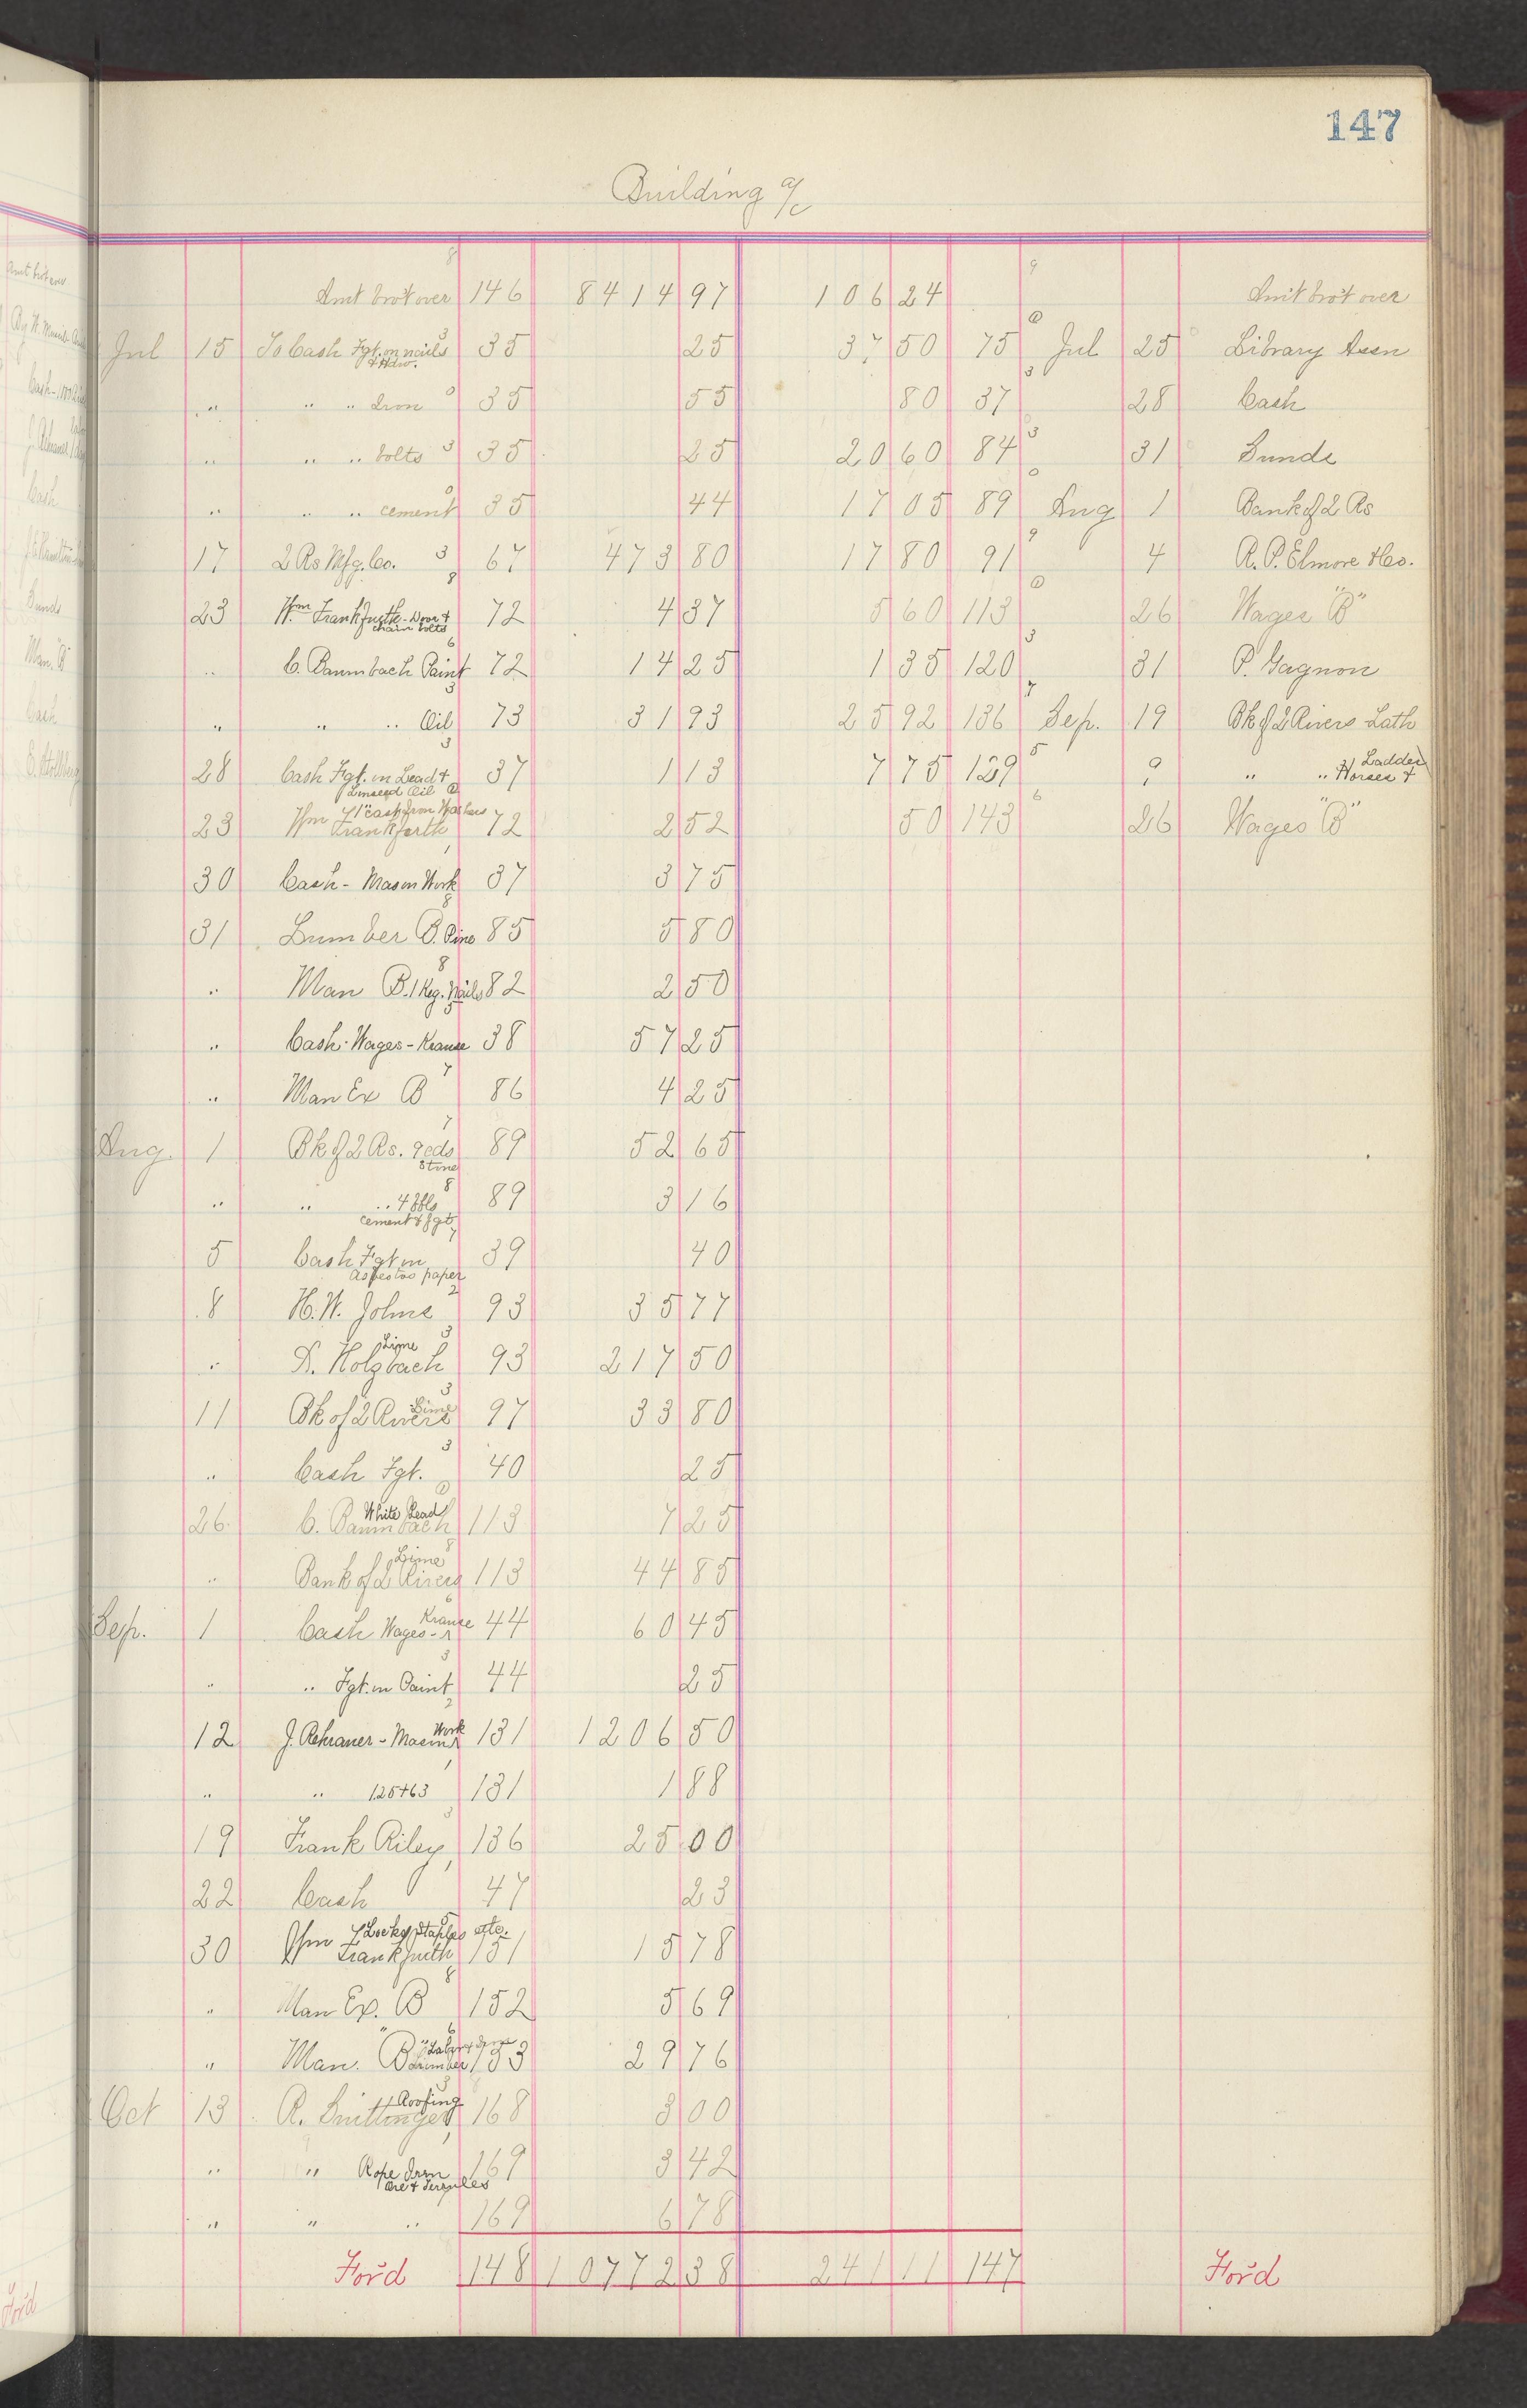 147
Building a/c
Amt bro't over 146 8414 97 106 24 Amt bro't over
Jul 15 To Cash Fgt. on nails & Hdw. 35 25 37 50 75 Jul 25 Library Assn
" " " Iron 35 55 80 37 28 Cash
" " " bolts 35 25 20 60 84 31 Sunds
" " " cement 35 44 17 05 89 Aug 1 Bank of 2 Rs
17 2 Rs Mfg. Co. 67 473 80 17 80 91 4 R. P. Elmore & Co.
23 Wm Frankfurth - Door & chain bolts 72 4 37 5 60 113 26 Wages "B"
" C. Baumbach Paint 72 14 25 1 35 120 31 P. Gagnon
" " " Oil 73 31 93 25 92 136 Sep. 19 Bk of 2 Rivers Lath
28 Cash Fgt. on Lead & Linseed Oil 37 1 13 7 75 139 9 " " Horses & Ladder
23 Wm Frankfurth 41" cast Iron Washers 72 2 52 50 143 26 Wages "B"
30 Cash - Mason Work 37 3 75
31 Lumber B. Pine 85 5 80
" Man B. 1 Keg. Nails 82 2 50
" Cash. Wages - Krause 38 57 25
" Man Ex B 86 4 25
Aug. 1 Bk of 2 Rs. 9 cds Stone 89 52 65
" " " 4 bbls cement & fgt. 89 3 16
5 Cash Fgt on Asbestos paper 39 40
8 H. W. Johns 93 35 77
" N. Holzbach Lime 93 217 50
11 Bk of 2 Rivers Lime 97 33 80
" Cash Fgt. 40 25
26 C. Baumbach White Lead 113 7 25
" Bank of 2 Rivers Lime 113 44 85
Sep. 1 Cash Wages - Krause 44 60 45
" " Fgt. on Paint 44 25
12 J. Rehrauer - Mason Work 131 1206 50
" " 1.25+63 131 1 88
19 Frank Riley 136 25 00
22 Cash 47 23
30 Wm Frankfurth Locks, Staples etc. 151 15 78
" Man Ex. B 152 5 69
" Man. "B" Lumber 153 29 76
Oct 13 R. Suittinger Roofing 168 3 00
" " Rope Iron 169 3 42
" " " 169 6 78
For'd 148 10772 38 241 11 147 For'd